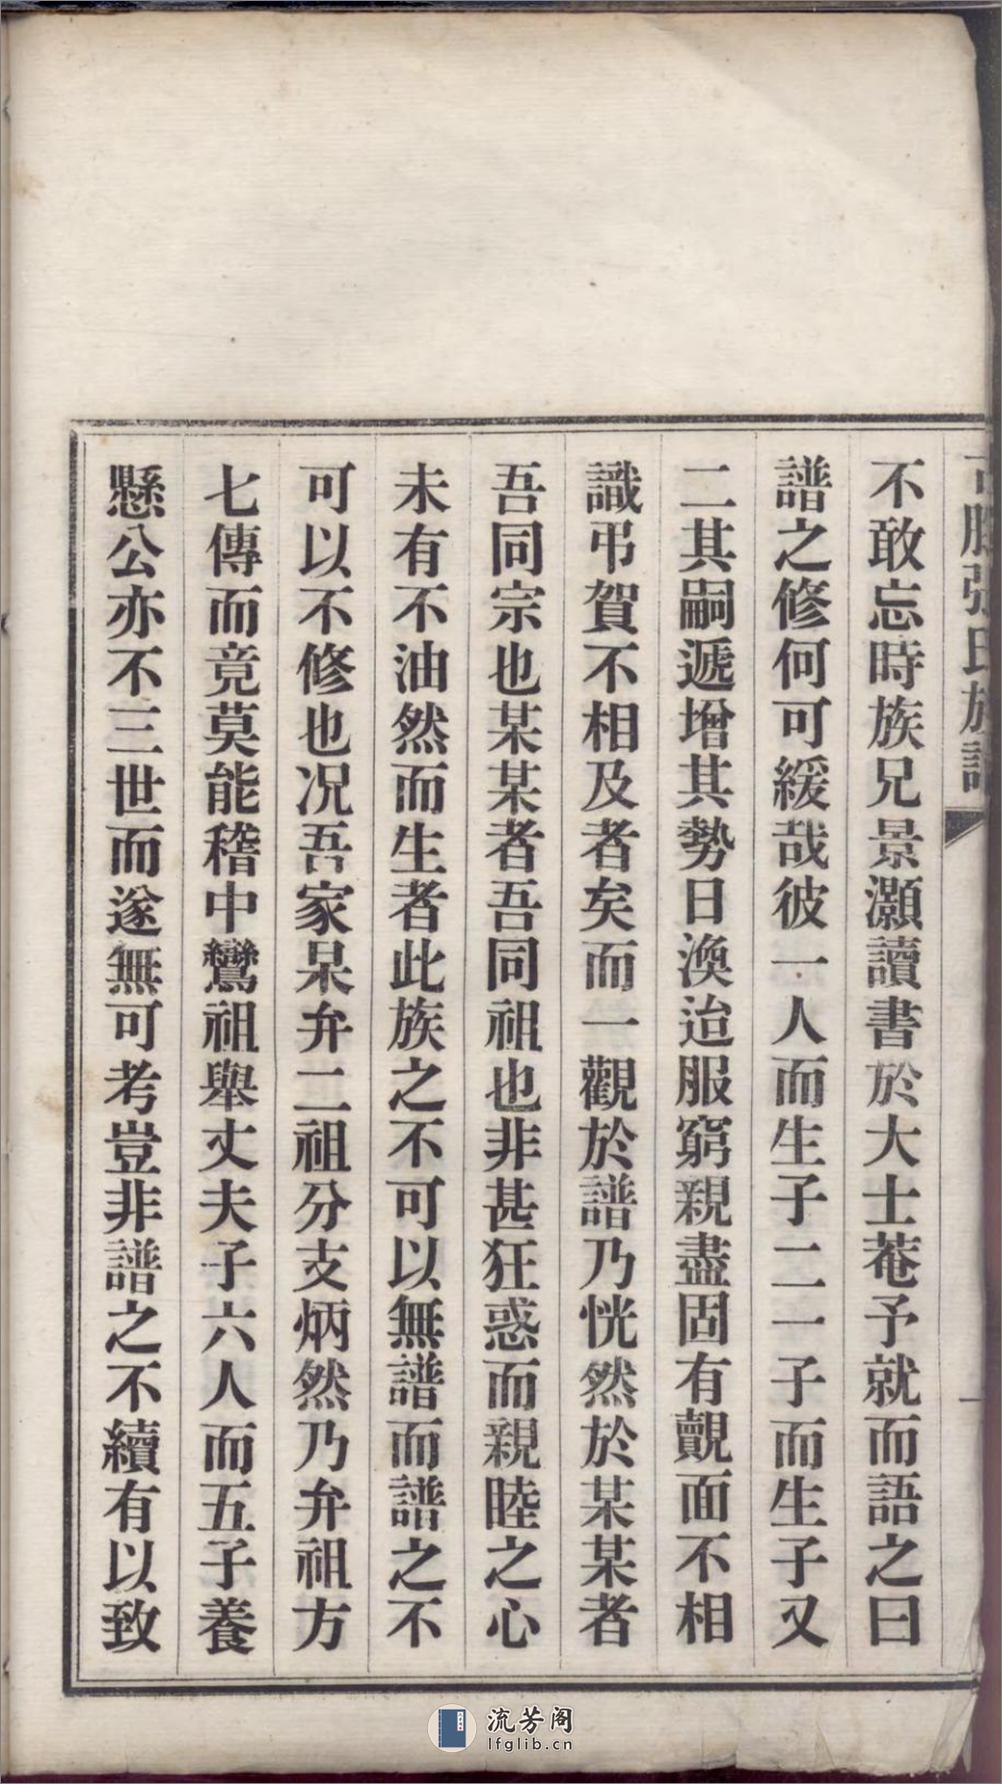 張氏族譜
不敢忘時族兄景灝讀書於大士菴予就而語之曰
譜之修何可緩哉彼一人而生子二一子而生子又
二其嗣遞增其勢日渙迨服窮親盡固有覿面不相
識弔賀不相及者矣而一觀於譜乃恍然於某某者
吾同宗也某某者吾同祖也非甚狂惑而親睦之心
未有不油然而生者此族之不可以無譜而譜之不
可以不修也况吾家杲弁二祖分支炳然乃弁祖方
七傳而竟莫能稽中鸞祖舉丈夫子六人而五子養
懸公亦不三世而遂無可考豈非譜之不續有以致
流芳阁
lfglib.cn